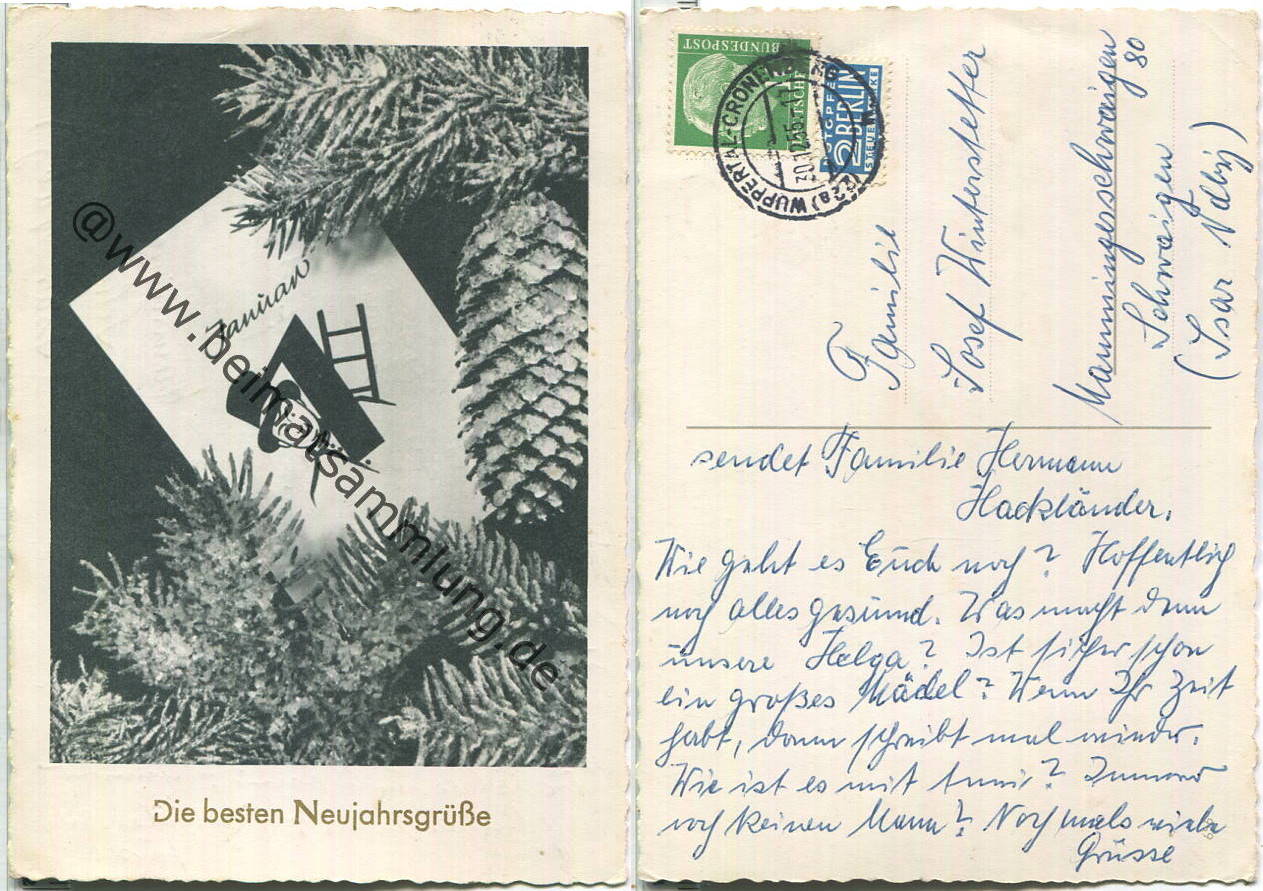 Januar
Die besten Neujahrsgrüße
@www.heimatsammlung.de
DEUTSCHE
BUNDESPOST
NOTOPFER
2 BERLIN
STEUERMARKE
(22a) WUPPERTAL-CRONENBERG
30.12.55
Familie
Josef Wintersteffer
Mammingerschwaigen
80
Schwaigen
(Isar Ndby)
sendet Familie Hermann
Hackländer.
Wie geht es Euch noch? Hoffentlich
noch alles gesund. Was macht denn
unsere Helga? Ist sicher schon
ein großes Mädel? Wenn Ihr Zeit
habt, dann schreibt mal wieder.
Wie ist es mit Anni? Immer
noch keinen Mann? Nochmals viele
Grüsse